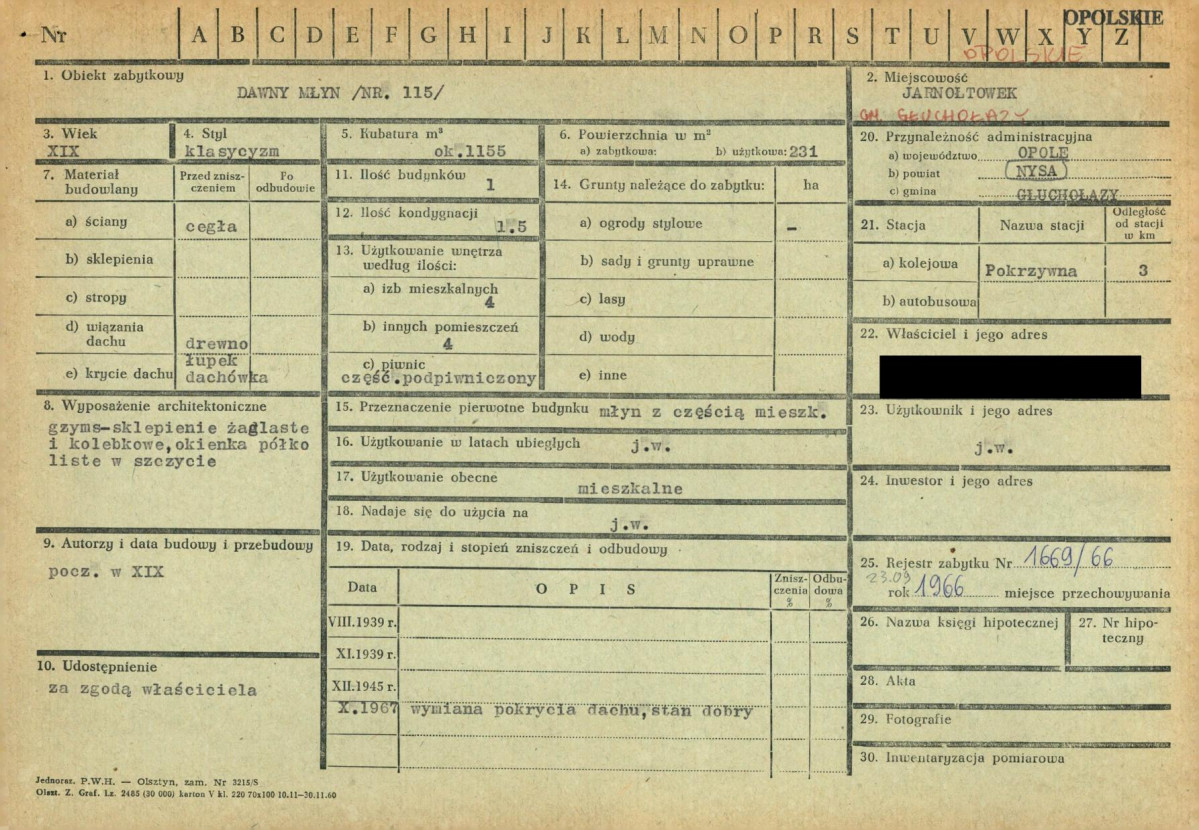 OPOLSKIE
Nr A B C D E F G H I J K L M N O P R S T U V W X Y Z
OPOLSKIE
1. Obiekt zabytkowy
DAWNY MŁYN /NR. 115/
2. Miejscowość
JARNOŁTOWEK
GM. GŁUCHOŁAZY
3. Wiek
XIX
4. Styl
klasycyzm
5. Kubatura m³
ok.1155
6. Powierzchnia w m²
a) zabytkowa: b) użytkowa: 231
20. Przynależność administracyjna
a) województwo OPOLE
b) powiat NYSA
c) gmina GŁUCHOŁAZY
7. Materiał budowlany
Przed znisz-
czeniem
Po
odbudowie
a) ściany cegła
b) sklepienia
c) stropy
d) wiązania
dachu drewno
e) krycie dachu łupek
dachówka
11. Ilość budynków
1
12. Ilość kondygnacji
1.5
13. Użytkowanie wnętrza
według ilości:
a) izb mieszkalnych
4
b) innych pomieszczeń
4
c) piwnic
część.podpiwniczony
14. Grunty należące do zabytku: ha
a) ogrody stylowe -
b) sady i grunty uprawne
c) lasy
d) wody
e) inne
21. Stacja Nazwa stacji Odległość
od stacji
w km
a) kolejowa Pokrzywna 3
b) autobusowa
22. Właściciel i jego adres
8. Wyposażenie architektoniczne
gzyms-sklepienie żaglaste
i kolebkowe,okienka półko
liste w szczycie
15. Przeznaczenie pierwotne budynku młyn z częścią mieszk.
16. Użytkowanie w latach ubiegłych j.w.
17. Użytkowanie obecne
mieszkalne
18. Nadaje się do użycia na
j.w.
23. Użytkownik i jego adres
j.w.
24. Inwestor i jego adres
9. Autorzy i data budowy i przebudowy
pocz. w XIX
19. Data, rodzaj i stopień zniszczeń i odbudowy
Data OPIS Znisz-
czenia
% Odbu-
dowa
%
VIII.1939 r.
XI.1939 r.
XII.1945 r.
X.1967 wymiana pokrycia dachu,stan dobry
25. Rejestr zabytku Nr 1669/66
23.09
rok 1966 miejsce przechowywania
26. Nazwa księgi hipotecznej
27. Nr hipo-
teczny
10. Udostępnienie
za zgodą właściciela
28. Akta
29. Fotografie
30. Inwentaryzacja pomiarowa
Jednoraz. P.W.H. — Olsztyn, zam. Nr 3215/S
Olszt. Z. Graf. Lz. 2485 (30 000) karton V kl. 220 70x100 10.11—30.11.60